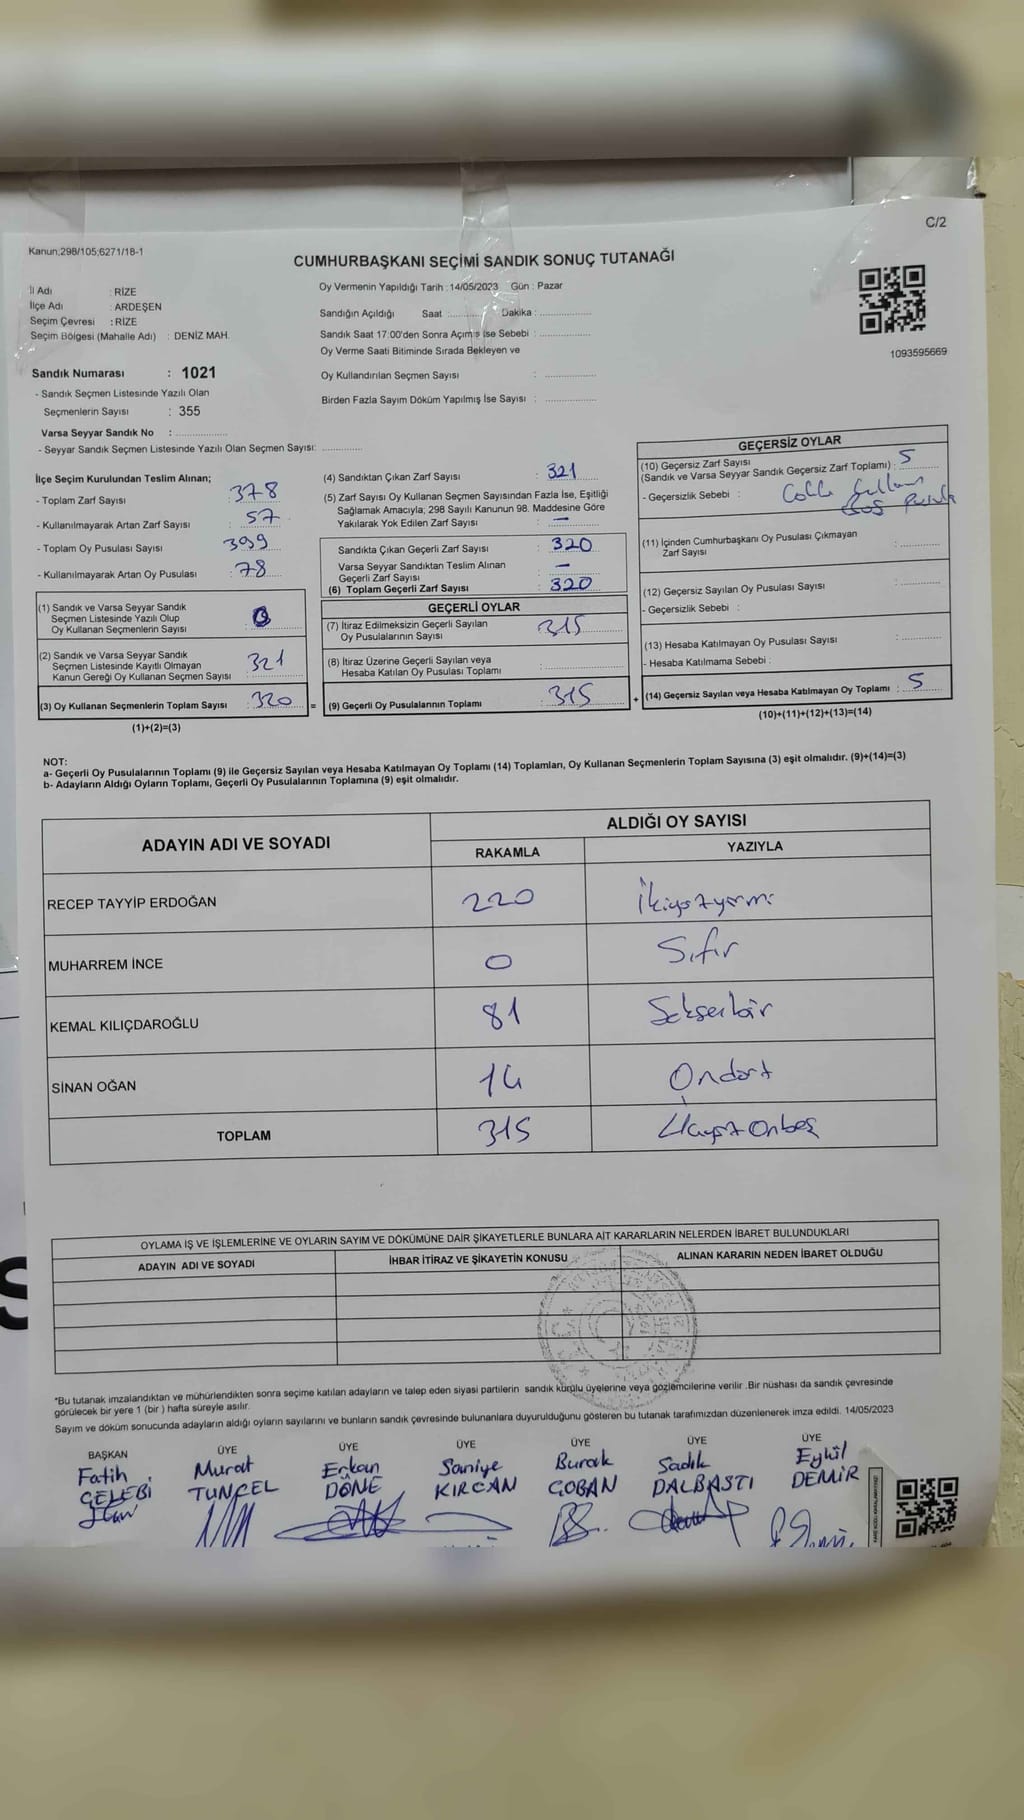 C/2
Kanun;298/105;6271/18-1
CUMHURBAŞKANI SEÇİMİ SANDIK SONUÇ TUTANAĞI
İl Adı : RİZE
İlçe Adı : ARDEŞEN
Seçim Çevresi : RİZE
Seçim Bölgesi (Mahalle Adı) : DENİZ MAH.
Sandık Numarası : 1021
- Sandık Seçmen Listesinde Yazılı Olan
Seçmenlerin Sayısı : 355
Varsa Seyyar Sandık No : ..............
- Seyyar Sandık Seçmen Listesinde Yazılı Olan Seçmen Sayısı: ............
Oy Vermenin Yapıldığı Tarih : 14/05/2023 Gün : Pazar
Sandığın Açıldığı Saat :.......... Dakika : ..............
Sandık Saat 17:00'den Sonra Açımış İse Sebebi : ..............
Oy Verme Saati Bitiminde Sırada Bekleyen ve
Oy Kullandırılan Seçmen Sayısı : ..............
Birden Fazla Sayım Döküm Yapılmış İse Sayısı : ..............
1093595669
İlçe Seçim Kurulundan Teslim Alınan;
- Toplam Zarf Sayısı : 378
- Kullanılmayarak Artan Zarf Sayısı : 57
- Toplam Oy Pusulası Sayısı : 399
- Kullanılmayarak Artan Oy Pusulası : 78
(1) Sandık ve Varsa Seyyar Sandık
Seçmen Listesinde Yazılı Olup
Oy Kullanan Seçmenlerin Sayısı :
(2) Sandık ve Varsa Seyyar Sandık
Seçmen Listesinde Kayıtlı Olmayan
Kanun Gereği Oy Kullanan Seçmen Sayısı : 321
(3) Oy Kullanan Seçmenlerin Toplam Sayısı : 320
(1)+(2)=(3)
=
(4) Sandıktan Çıkan Zarf Sayısı : 321
(5) Zarf Sayısı Oy Kullanan Seçmen Sayısından Fazla İse, Eşitliği
Sağlamak Amacıyla; 298 Sayılı Kanunun 98. Maddesine Göre
Yakılarak Yok Edilen Zarf Sayısı : —
Sandıkta Çıkan Geçerli Zarf Sayısı : 320
Varsa Seyyar Sandıktan Teslim Alınan
Geçerli Zarf Sayısı : —
(6) Toplam Geçerli Zarf Sayısı : 320
GEÇERLİ OYLAR
(7) İtiraz Edilmeksizin Geçerli Sayılan
Oy Pusulalarının Sayısı : 315
(8) İtiraz Üzerine Geçerli Sayılan veya
Hesaba Katılan Oy Pusulası Toplamı : ..............
(9) Geçerli Oy Pusulalarının Toplamı : 315
+
GEÇERSİZ OYLAR
(10) Geçersiz Zarf Sayısı
(Sandık ve Varsa Seyyar Sandık Geçersiz Zarf Toplamı) : 5
- Geçersizlik Sebebi :
(11) İçinden Cumhurbaşkanı Oy Pusulası Çıkmayan
Zarf Sayısı : ..............
(12) Geçersiz Sayılan Oy Pusulası Sayısı : ..............
- Geçersizlik Sebebi :
(13) Hesaba Katılmayan Oy Pusulası Sayısı : ..............
- Hesaba Katılmama Sebebi :
(14) Geçersiz Sayılan veya Hesaba Katılmayan Oy Toplamı : 5
(10)+(11)+(12)+(13)=(14)
NOT:
a- Geçerli Oy Pusulalarının Toplamı (9) ile Geçersiz Sayılan veya Hesaba Katılmayan Oy Toplamı (14) Toplamları, Oy Kullanan Seçmenlerin Toplam Sayısına (3) eşit olmalıdır. (9)+(14)=(3)
b- Adayların Aldığı Oyların Toplamı, Geçerli Oy Pusulalarının Toplamına (9) eşit olmalıdır.
ADAYIN ADI VE SOYADI
ALDIĞI OY SAYISI
RAKAMLA YAZIYLA
RECEP TAYYİP ERDOĞAN 220 İkiyüzyirmi
MUHARREM İNCE 0 Sıfır
KEMAL KILIÇDAROĞLU 81 Seksenbir
SİNAN OĞAN 14 Ondört
TOPLAM 315 Üçyüzonbeş
OYLAMA İŞ VE İŞLEMLERİNE VE OYLARIN SAYIM VE DÖKÜMÜNE DAİR ŞİKAYETLERLE BUNLARA AİT KARARLARIN NELERDEN İBARET BULUNDUKLARI
ADAYIN ADI VE SOYADI İHBAR İTİRAZ VE ŞİKAYETİN KONUSU ALINAN KARARIN NEDEN İBARET OLDUĞU
*Bu tutanak imzalandıktan ve mühürlendikten sonra seçime katılan adayların ve talep eden siyasi partilerin sandık kurulu üyelerine veya gözlemcilerine verilir .Bir nüshası da sandık çevresinde
görülecek bir yere 1 (bir ) hafta süreyle asılır.
Sayım ve döküm sonucunda adayların aldığı oyların sayılarını ve bunların sandık çevresinde bulunanlara duyurulduğunu gösteren bu tutanak tarafımızdan düzenlenerek imza edildi. 14/05/2023
BAŞKAN ÜYE ÜYE ÜYE ÜYE ÜYE ÜYE
Fatih Murat Erkan Saniye Burak Sadık Eylül
ÇELEBİ TUNCEL DÖNE KIRCAN ÇOBAN DALBASTI DEMİR